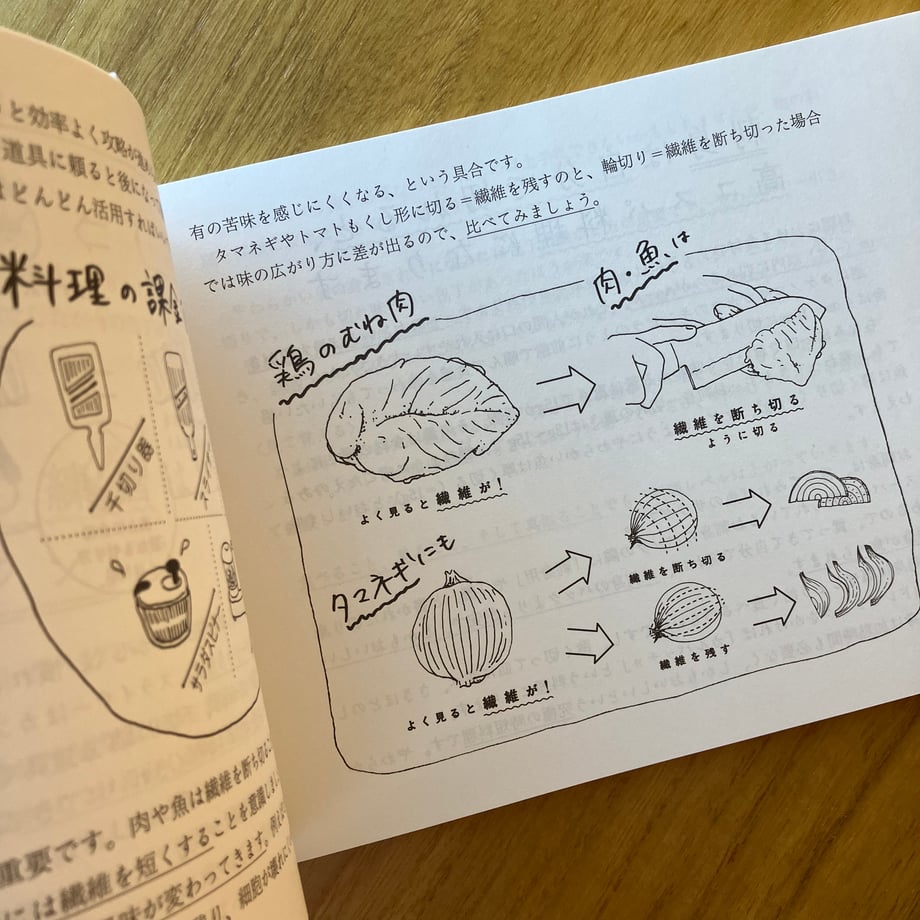 と効率よく攻略が進
道具に頼ると後にな
はどんどん活用すれば
料理の課金
千切り器
スライサ
サラダスピナー
重要です。肉や魚は繊維を断ち切る
には繊維を短くすることを意識しま
味が変わってきます。例え
、細胞が潰れにく
有の苦味を感じにくくなる、という具合です。
タマネギやトマトもくし形に切る＝繊維を残すのと、輪切り＝繊維を断ち切った場合
では味の広がり方に差が出るので、比べてみましょう。
鶏のむね肉
肉・魚は
よく見ると繊維が！
繊維を断ち切る
ように切る
タマネギにも
よく見ると繊維が！
繊維を断ち切る
繊維を残す